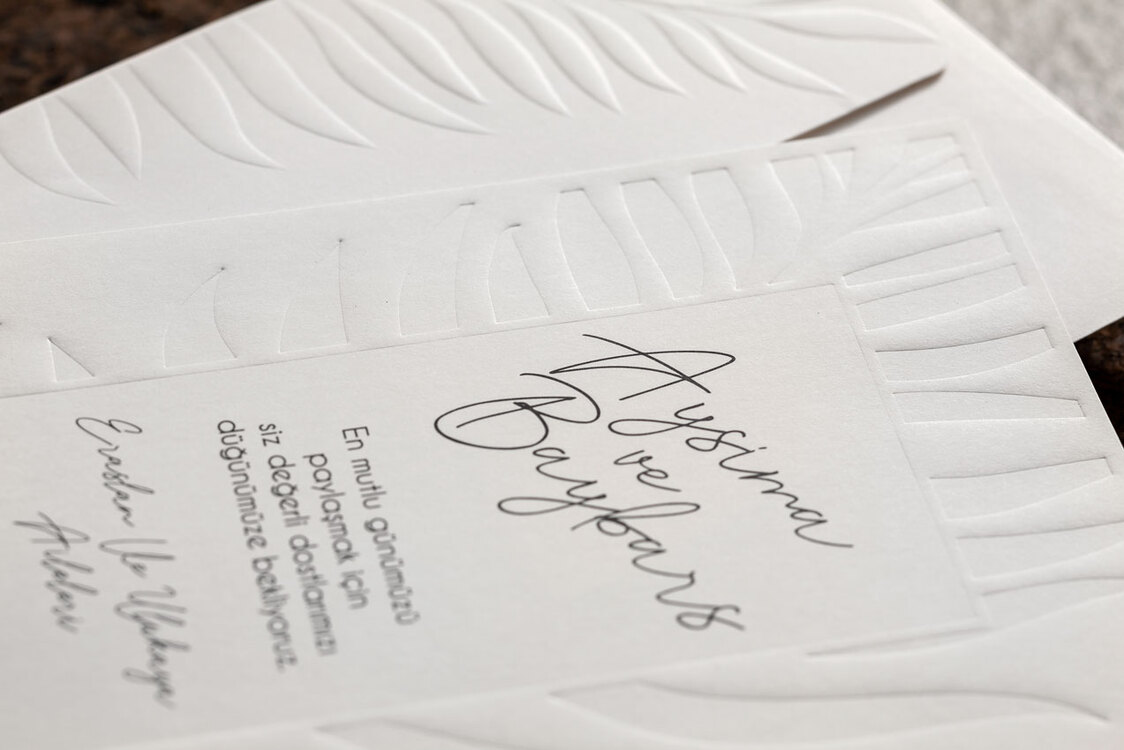 Aysima
ve
Baybars
En mutlu günümüzü
paylaşmak için
siz değerli dostlarımızı
düğünümüze bekliyoruz.
Eraslan Ve